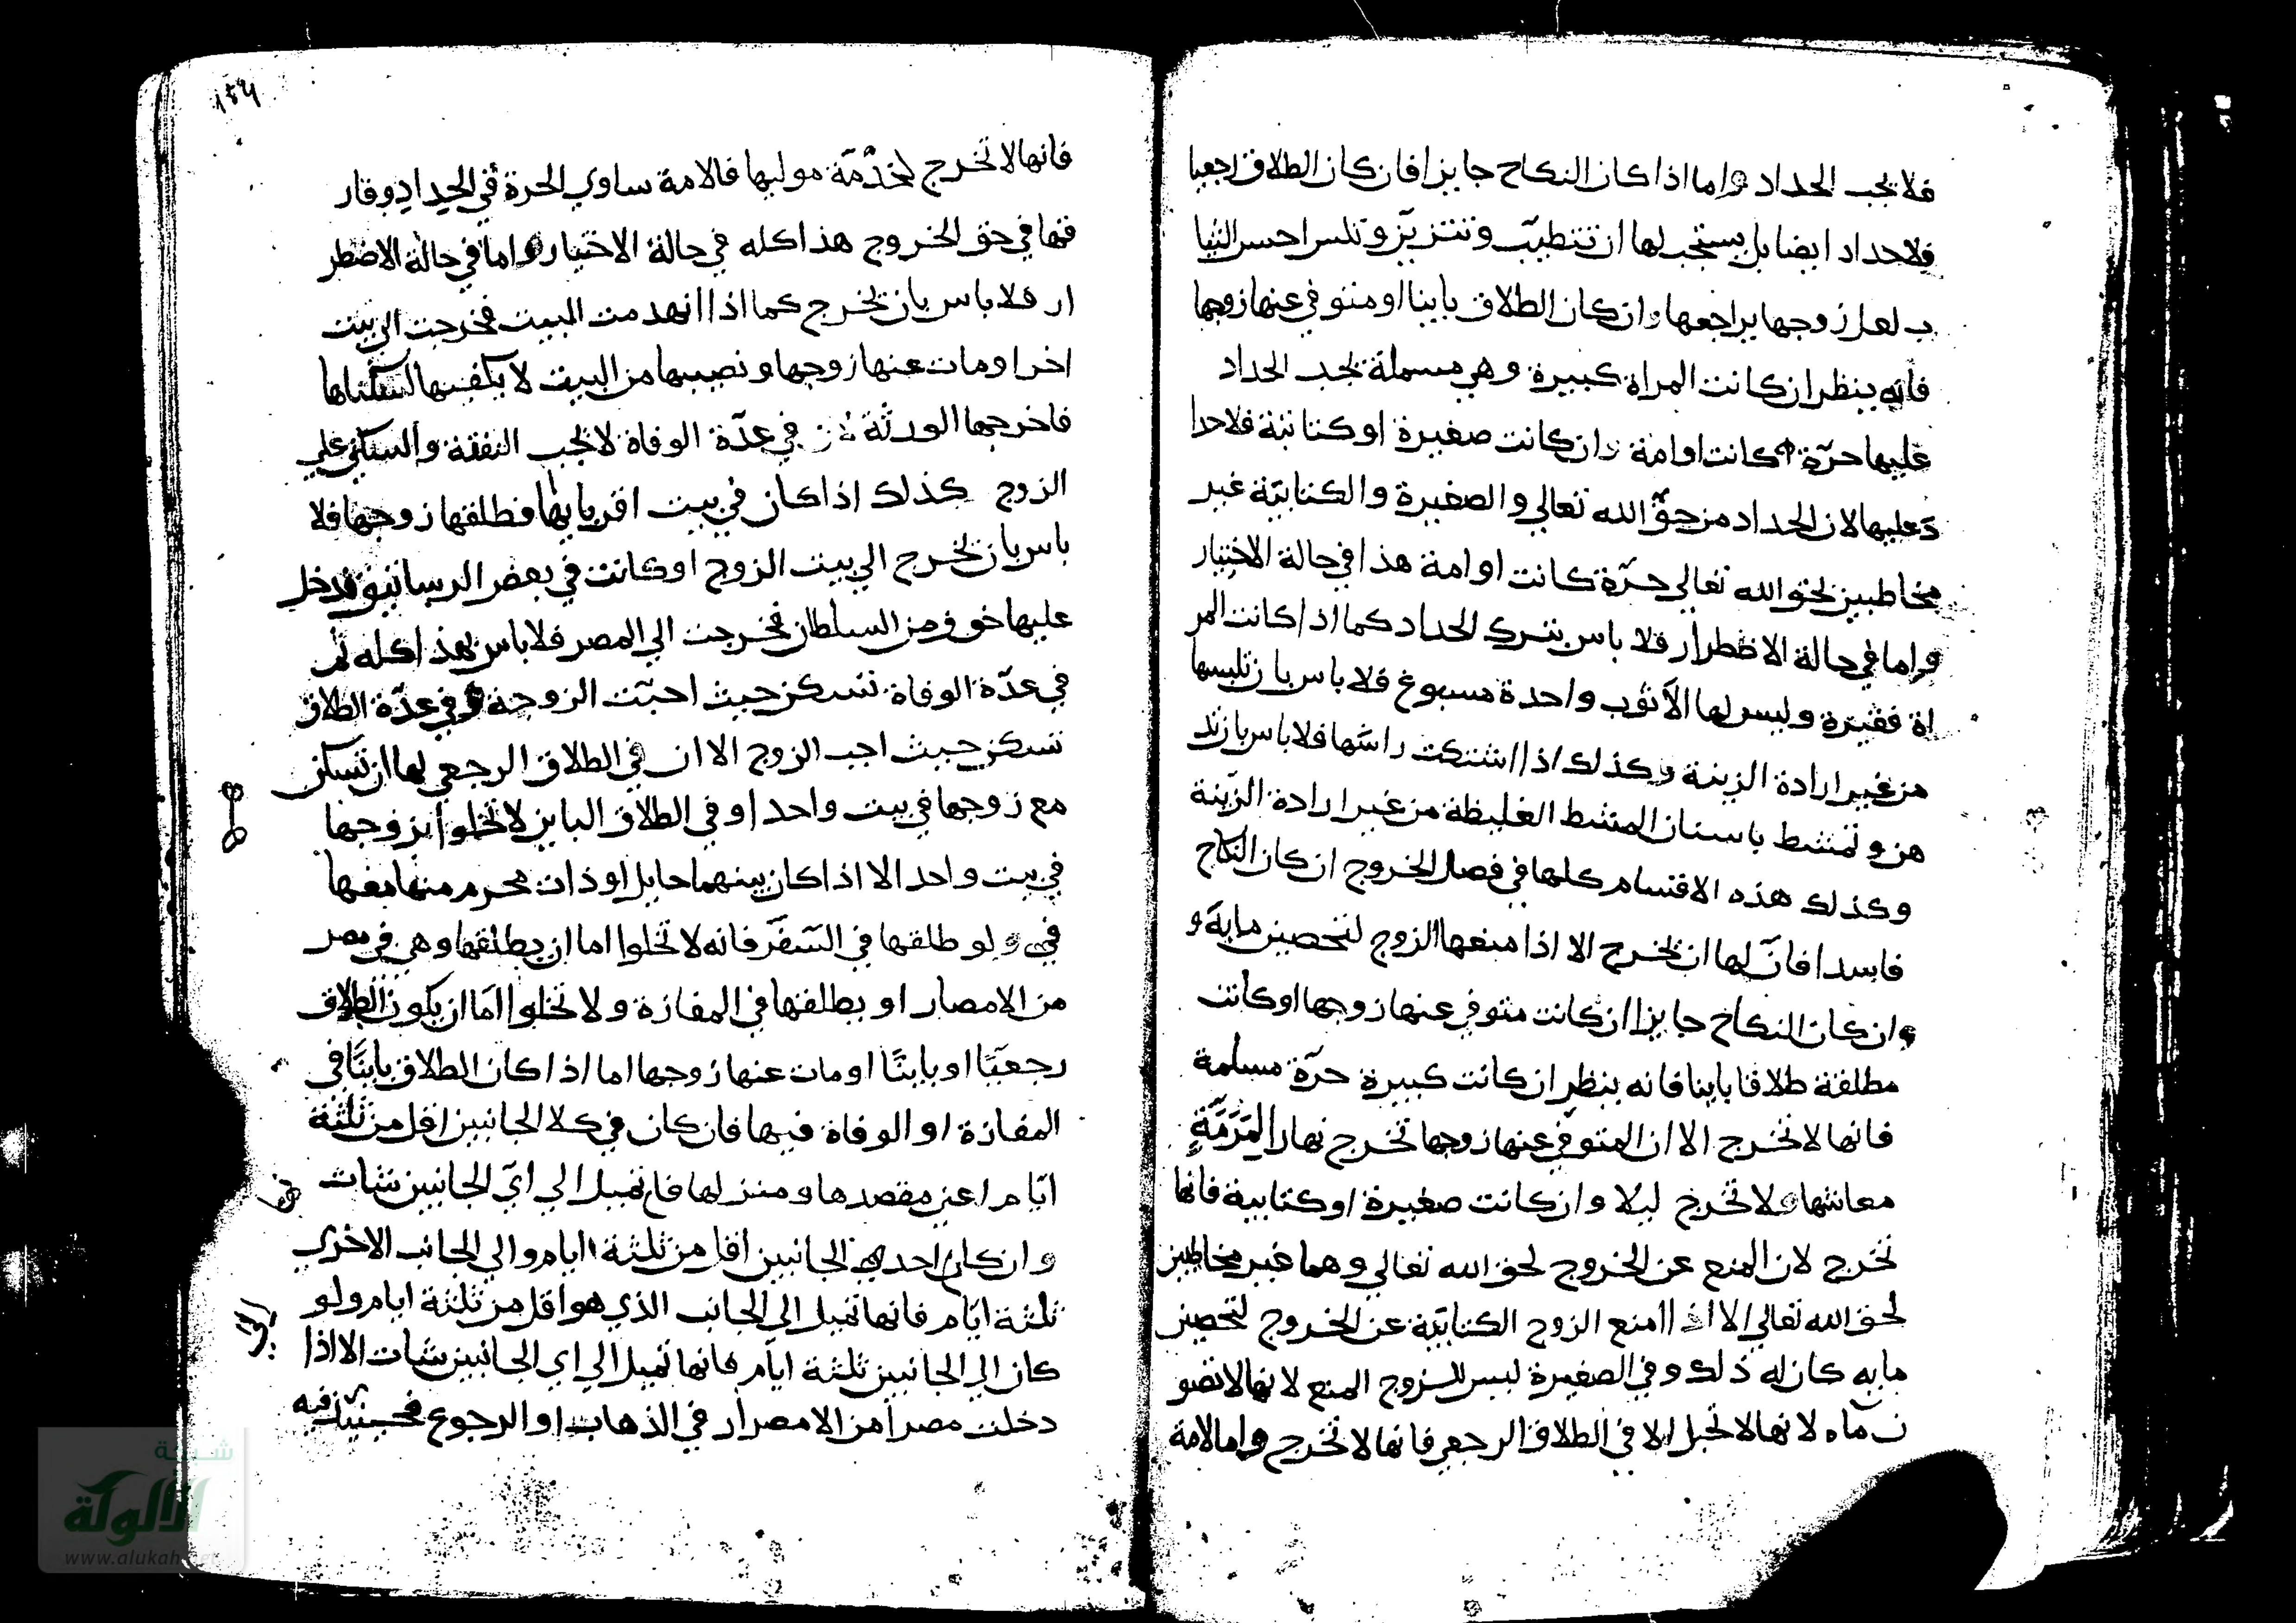 فلا يجب الحداد واما اذا كان النكاح جايزا فان كان الطلاق رجعيا
فلا حداد ايضا بل يستحب لها ان تتطيب وتتزين وتلبس احسن الثيا
ب لعل زوجها يراجعها وان كان الطلاق باينا او متوفي عنها زوجها
فانه ينظر ان كانت المراة كبيرة وهي مسملة يجب الحداد
عليها حرّة كانت او امة وان كانت صغيرة او كتابية فلا حدا
د عليها لان الحداد من حقّ الله تعالي والصغيرة والكتابيّة غير
مخاطبين بحق الله تعالي حرّة كانت او امة هذا في حالة الاختيار
واما في حالة الاضطرار فلا باس بترك الحداد كما اذا كانت المر
اة فقيرة وليس لها الا ثوب واحدة مسبوغ فلا باس بان تلبسها
من غير ارادة الزينة وكذلك اذا اشتكت راسها فلا باس بان تد
هن وتمشط باسنان المشط الغليظة من غير ارادة الزينة
وكذلك هذه الاقسام كلها في فصل الخروج ان كان النكاح
فاسدا فانّ لها ان تخرج الا اذا منعها الزوج لتحصين مايه و
وان كان النكاح جايزا ان كانت متوفي عنها زوجها او كانت
مطلقة طلاقا باينا فانه ينظر ان كانت كبيرة حرّة مسلمة
فانها لا تخرج الا ان المتوفي عنها زوجها تخرج نهارا لمرمّة
معاشها ولا تخرج ليلا وان كانت صغيرة او كتابية فانها
تخرج لان المنع عن الخروج لحق الله تعالي وهما غير مخاطبين
لحق الله تعالي الا اذا امنع الزوج الكتابيّة عن الخروج لتحصين
مايه كان له ذلك وفي الصغيرة ليس للزوج المنع لانها لا تصو
ن ماه لانها لا تحبل الا في الطلاق الرجعي فانها لا تخرج واما الامة
١٥٩
فانها لا تخرج لخدمة موليها فالامة ساوي الحرة في الحداد وفار
قها في حق الخروج هذا كله في حالة الاختيار واما في حالة الاضطر
ار فلا باس بان تخرج كما اذا انهدمت البيت فخرجت الي بيت
اخر او مات عنها زوجها ونصيبها من البيت لا يكفيها لسكناها
فاخرجها الورثة في عدّة الوفاة لا تجب النفقة والسكني علي
الزوج كذلك اذا كان في بيت اقربايها فطلقها زوجها فلا
باس بان تخرج الي بيت الزوج او كانت في بعض الرساتيق فدخل
عليها خوف من السلطان فخرجت الي المصر فلا باس بهذا كله ثم
في عدّة الوفاة تسكن حيث احبّت الزوجة وفي عدّة الطلاق
تسكن حيث احب الزوج الا ان في الطلاق الرجعي لها ان تسكن
مع زوجها في بيت واحد او في الطلاق الباين لا تخلوا بزوجها
في بيت واحد الا اذا كان بينهما حايل او ذات محرم منها معها
في ولو طلقها في السّفر فانه لا تخلوا اما ان يطلقها وهي في مصر
من الامصار او يطلقها في المفازة ولا تخلوا امّا ان يكون الطلاق
رجعيّا او باينًا او مات عنها زوجها اما اذا كان الطلاق باينًا في
المفازة او الوفاة فيها فان كان في كلا الجانبين اقل من ثلثة
ايّام اعني مقصدها ومنزلها فان تميل الي ايّ الجانبين شات
وان كان احدي الجانبين اقل من ثلثة ايام والي الجانب الاخري
ثلثة ايّام فانها تميل الي الجانب الذي هو اقل من ثلثة ايام ولو
كان الي الجانبين ثلثة ايّام فانها تميل الي اي الجانبين شات الا اذا
دخلت مصرا من الامصرار في الذهاب او الرجوع فحينئذ فيه
شبكة
الألوكة
www.alukah.net